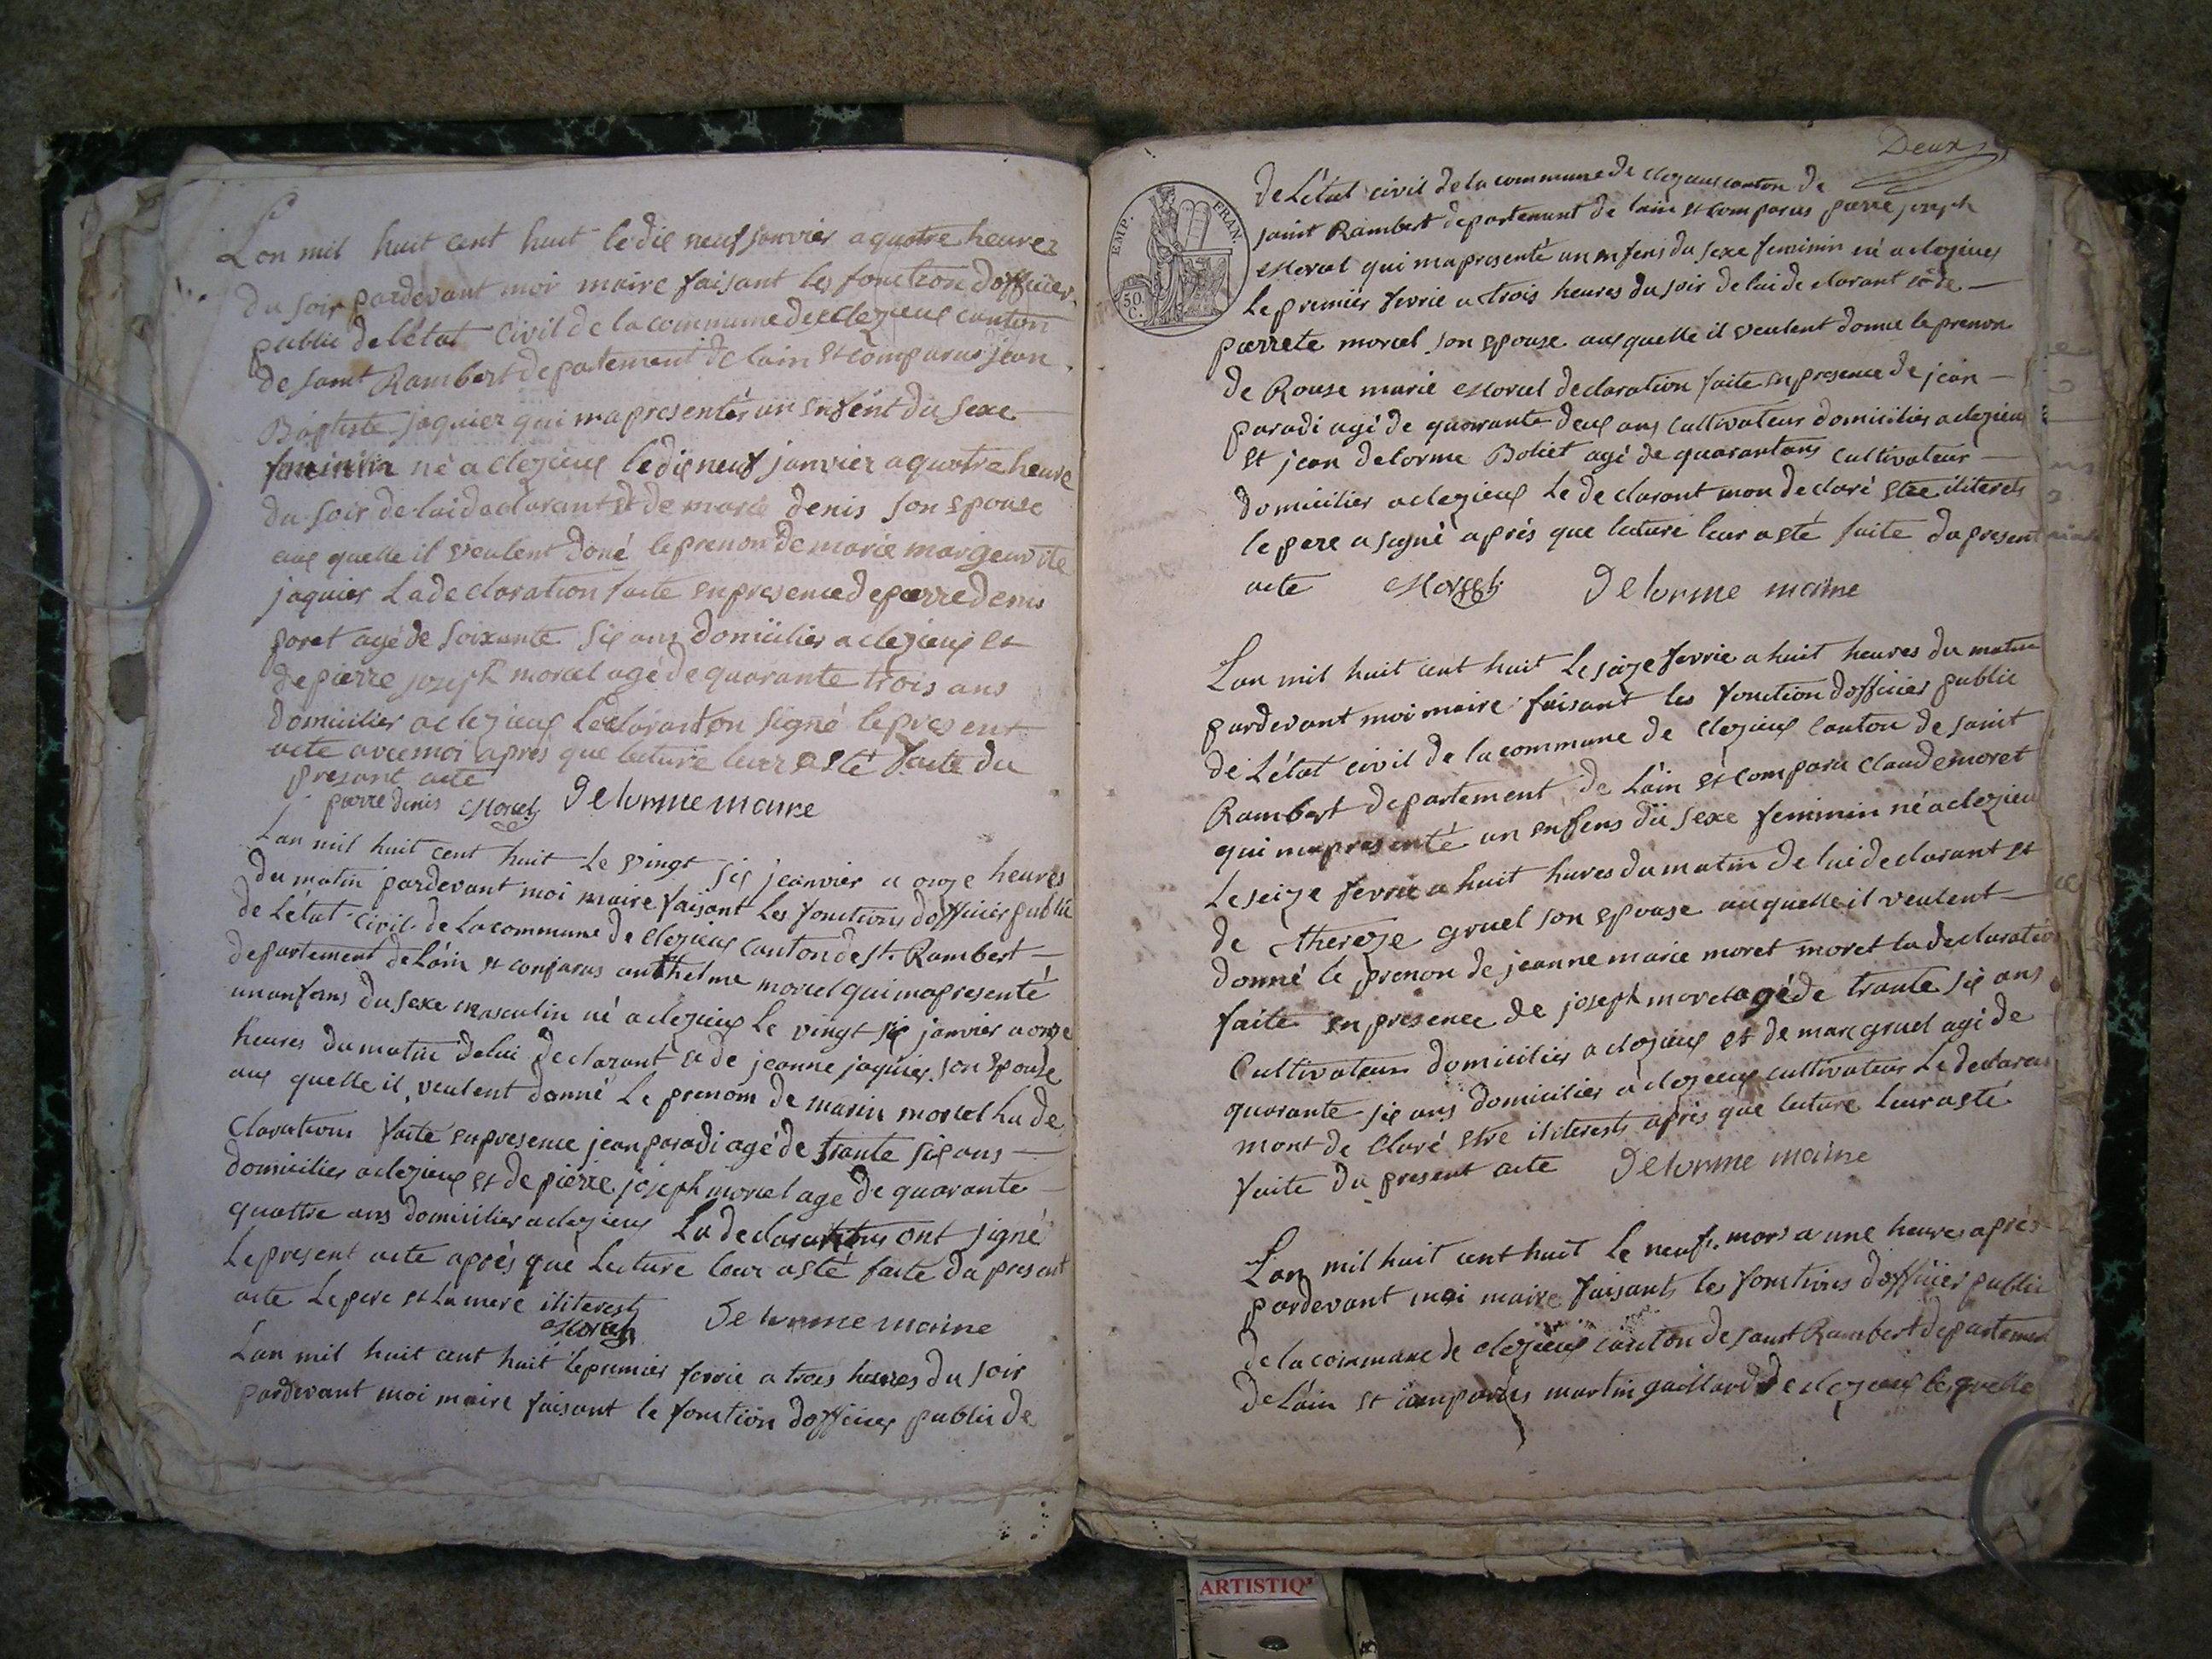 Lan mil huit cent huit le die neuf janvier a quatre heures
du soir pardevant moi maire faisant les fonction dofficier
public de letat civil de la commune de clezieux canton
de saint Rambert departement de lain est comparus jean
Baptiste jaquier qui ma presenter un enfent du sexe
feminin né a clezieux le dix neuf janvier a quatre heure
du soir de lui declarant et de marie denis son epouse
aux quelle il veulent doné le prenon de marie margeurite
jaquier La declaration faite en presence de pierre denis
poret agé de soixante six ans domicilier a clezieux et
de pierre joseph morcel agé de quarante trois ans
domicilier a clezieux signé le present
acte avec moi aprés que lecture leur a eté faite du
presant acte
pierre denis Morcel Delorme maire
Lan mil huit cent huit le vingt six jeanvier a onze heures
du matin pardevant moi maire faisant les fonctions dofficier public
de Létat civil de la commune de clezieux canton de st. Rambert
departement de Láin est conparus anthelme morcel qui ma presenté
un anfans du sexe masculin né a clezieux le vingt six janvier a onze
heures du matin de lui declarant et de jeanne jaquier son epouse
aux quelle il veulent donné le prenom de marin morcel La de
clarations faite en presence jean paradi agé de trante six ans
domicilier a clezieux et de pierre joseph morcel age de quarante
quattre ans domicilier a clezieux La declarations ont signé
le present acte après què lecture leur a eté faite du present
acte Le pere et la mere iliterests
Morcel Delorme maire
Lan mil huit cent huit le premier fevrie a trois heures du soir
pardevant moi maire faisant le fonction dofficier public de
Deux
EMP. FRAN.
50 C.
de Létat civil de la commune de clezieux canton de
saint Rambert departement de lain est comparus pierre joseph
Morcel qui ma presenté un enfens du sexe feminin né a clezieux
le premier fevrie a trois heures du soir de lui declarant et de
pierrete morcel son epouse aux quelle il veulent donne le prenon
de Rouse marie Morcel declaration faite en presence de jean
paradi agé de quarante deux ans cultivateur domicilier a clezieux
et jean delorme Boliet agé de quarant ans cultivateur
domicilier a clezieux Le declarant mon declaré etre iliterets
le pere a signé aprés que lecture leur a eté faite du present
acte Morcel Delorme maire
Lan mil huit cent huit Le seize fevrie a huit heures du matin
pardevant moi maire faisant les fonction dofficier public
de Létat civil de la commune de clezieux canton de saint
Rambert departement de Láin est comparu claude moret
qui ma presenté un enfens du sexe feminin né a clezieu
Le seize fevrie a huit hures du matin de lui declarant et
de thereze gruel son epouse auxquelle il veulent
donné le prenon de jeanne marie moret moret la declaration
faite en presence de joseph morel agé de trante six ans
Cultivateur domicilier a clezieux et de marc gruel agé de
quarante six ans domicilier a clezieux cultivateur Le declarans
mont declaré etre iliterests aprés que lecture leur a eté
faite du present acte Delorme maire
Lan mil huit cent huit Le neuf mars a une heures aprés
pardevant moi maire faisants les fonctions dofficier public
de la commune de clezieux canton de saint Rambert departement
de Lain est comparus martin gaillard de clezieux lesquelle
ARTISTIQ